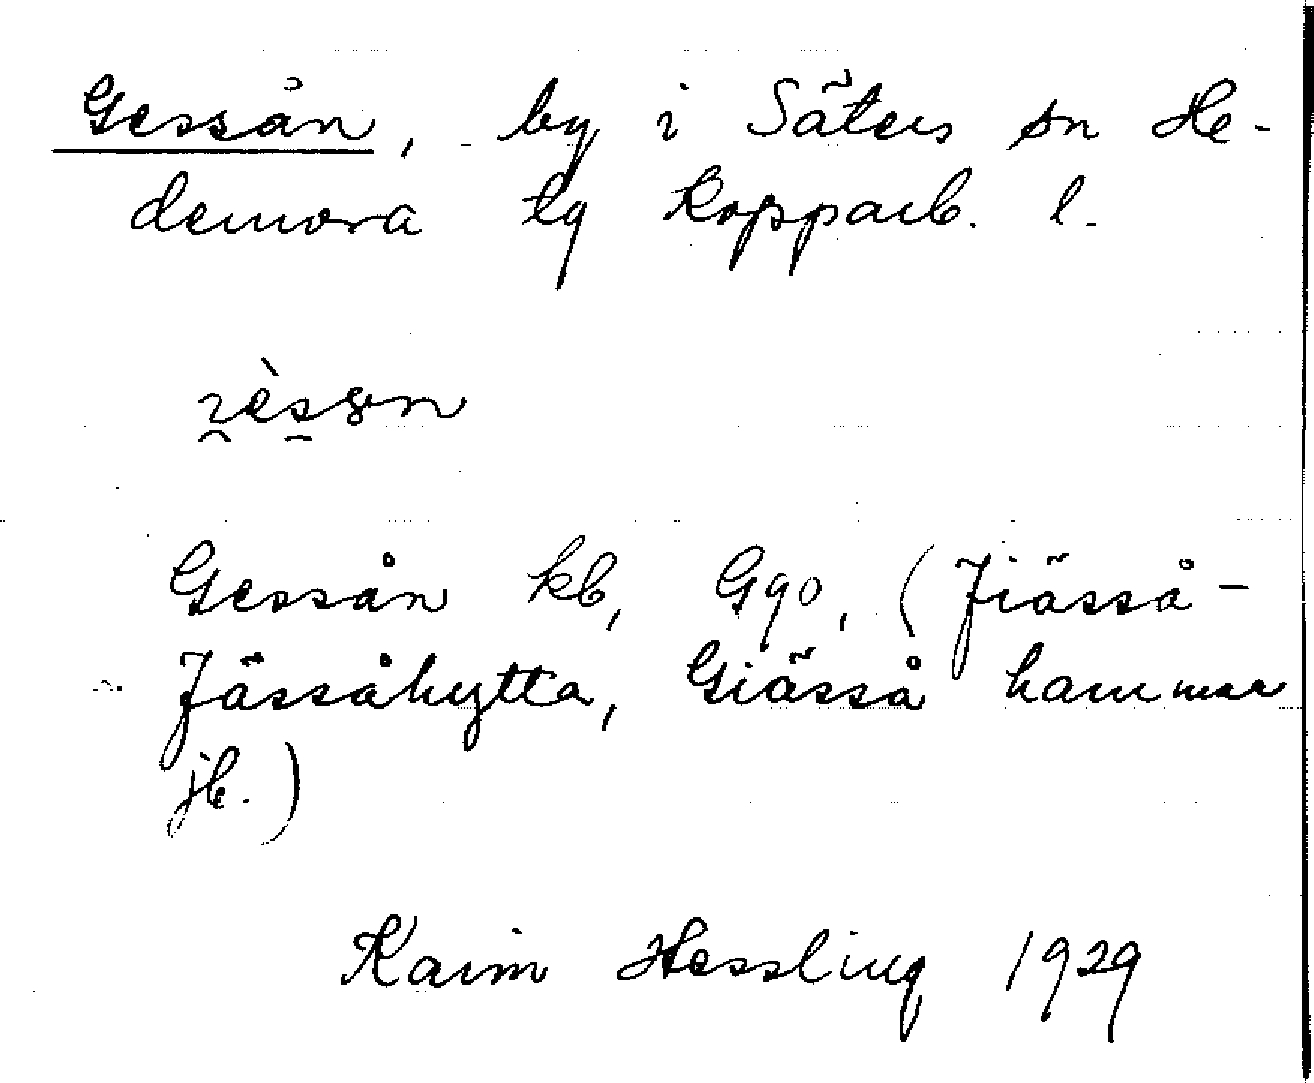 Gessån, by i Säters sn He-
demora tg Kopparb. l.
Gessån kb, Ggo, (Jiässå-
Jässåhytta, Giässå hammar
jb.)
Karin Hessling 1929